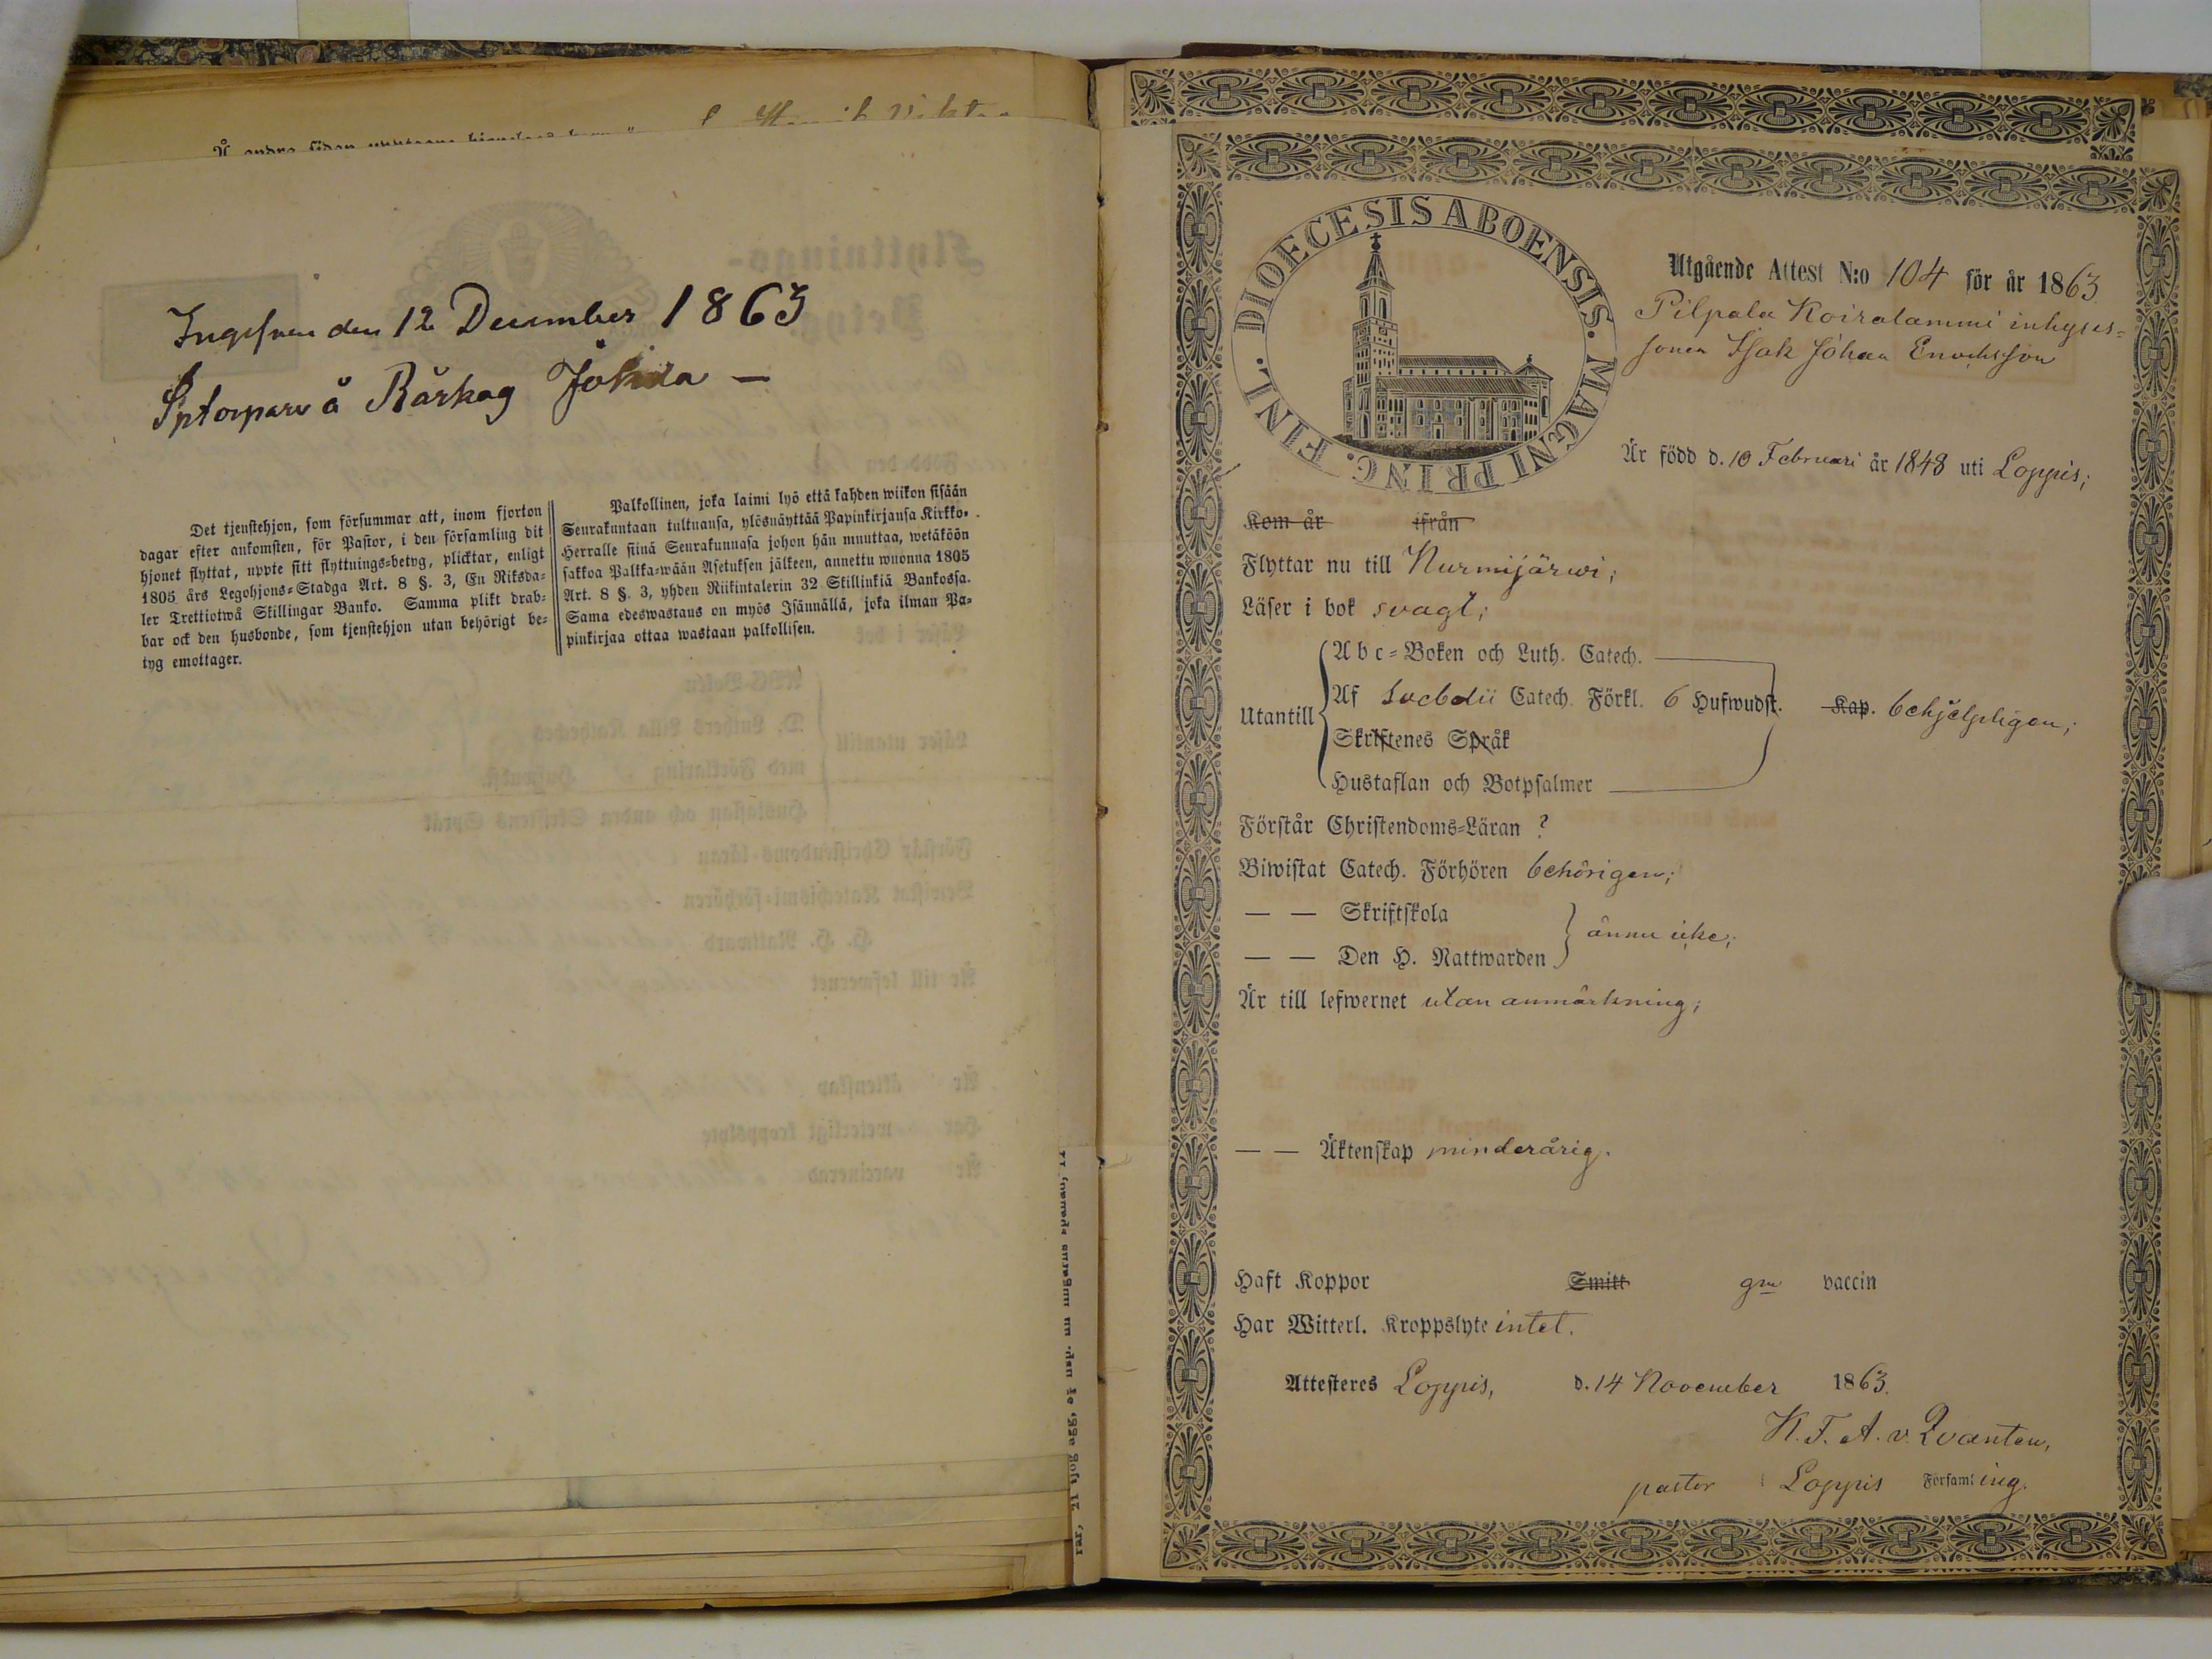 Ingifven den 12 December 1863
å Jökela —
Det tjenstehjon, som försummar att, inom fjorton
dagar efter ankomsten, för Pastor, i den församling dit
hjonet flyttat, uppte sitt flyttnings-betyg, plicktar, enligt
1805 års Legohjons-Stadga Art. 8 §. 3, En Riksda-
ler Trettiotwå Skillingar Banko. Samma plikt drab-
bar ock den husbonde, som tjenstehjon utan behörigt be-
tyg emottager.
Palkollinen, joka laimi lyö että kahden wiikon sisään
Seurakuntaan tultuansa, ylösnäyttää Papinkirjansa Kirkko-
Herralle siinä Seurakunnasa johon hän muuttaa, wetäköön
sakkoa Palkka-wään Asetuksen jälkeen, annettu wuonna 1805
Art. 8 §. 3, yhden Riikintalerin 32 Skillinkiä Bankossa.
Sama edeswastaus on myös Isännällä, joka ilman Pa-
pinkirjaa ottaa wastaan palkollisen.
DIOECESIS ABOENSIS. MAGNI PRINC. FINL.
Utgående Attest N:o 104 för år 1863
Pilpala Koiralammi inhyses-
sonen Isak Johan Enochsson
Är född d. 10 Februari år 1848 uti Loppis;
Kom år ifrån
Flyttar nu till Nurmijärwi;
Läser i bok svagt;
Utantill
Abc-Boken och Luth. Catech.
Af Svebelii Catech. Förkl. 6 Hufwudst. Kap. behjelpligen;
Skriftenes Språk
Hustaflan och Botpsalmer
Förstår Christendoms-Läran ?
Biwistat Catech. Förhören behörigen;
— — Skriftskola
ännu icke;
— — Den H. Nattwarden
Är till lefwernet utan anmärkning;
— — Äktenskap minderårig.
Haft Koppor Smitt gm vaccin
Har Witterl. Kroppslyte intet.
Attesteres Loppis, d. 14 November 1863.
K. F. A. v. Qvanten,
pastor i Loppis Församling.